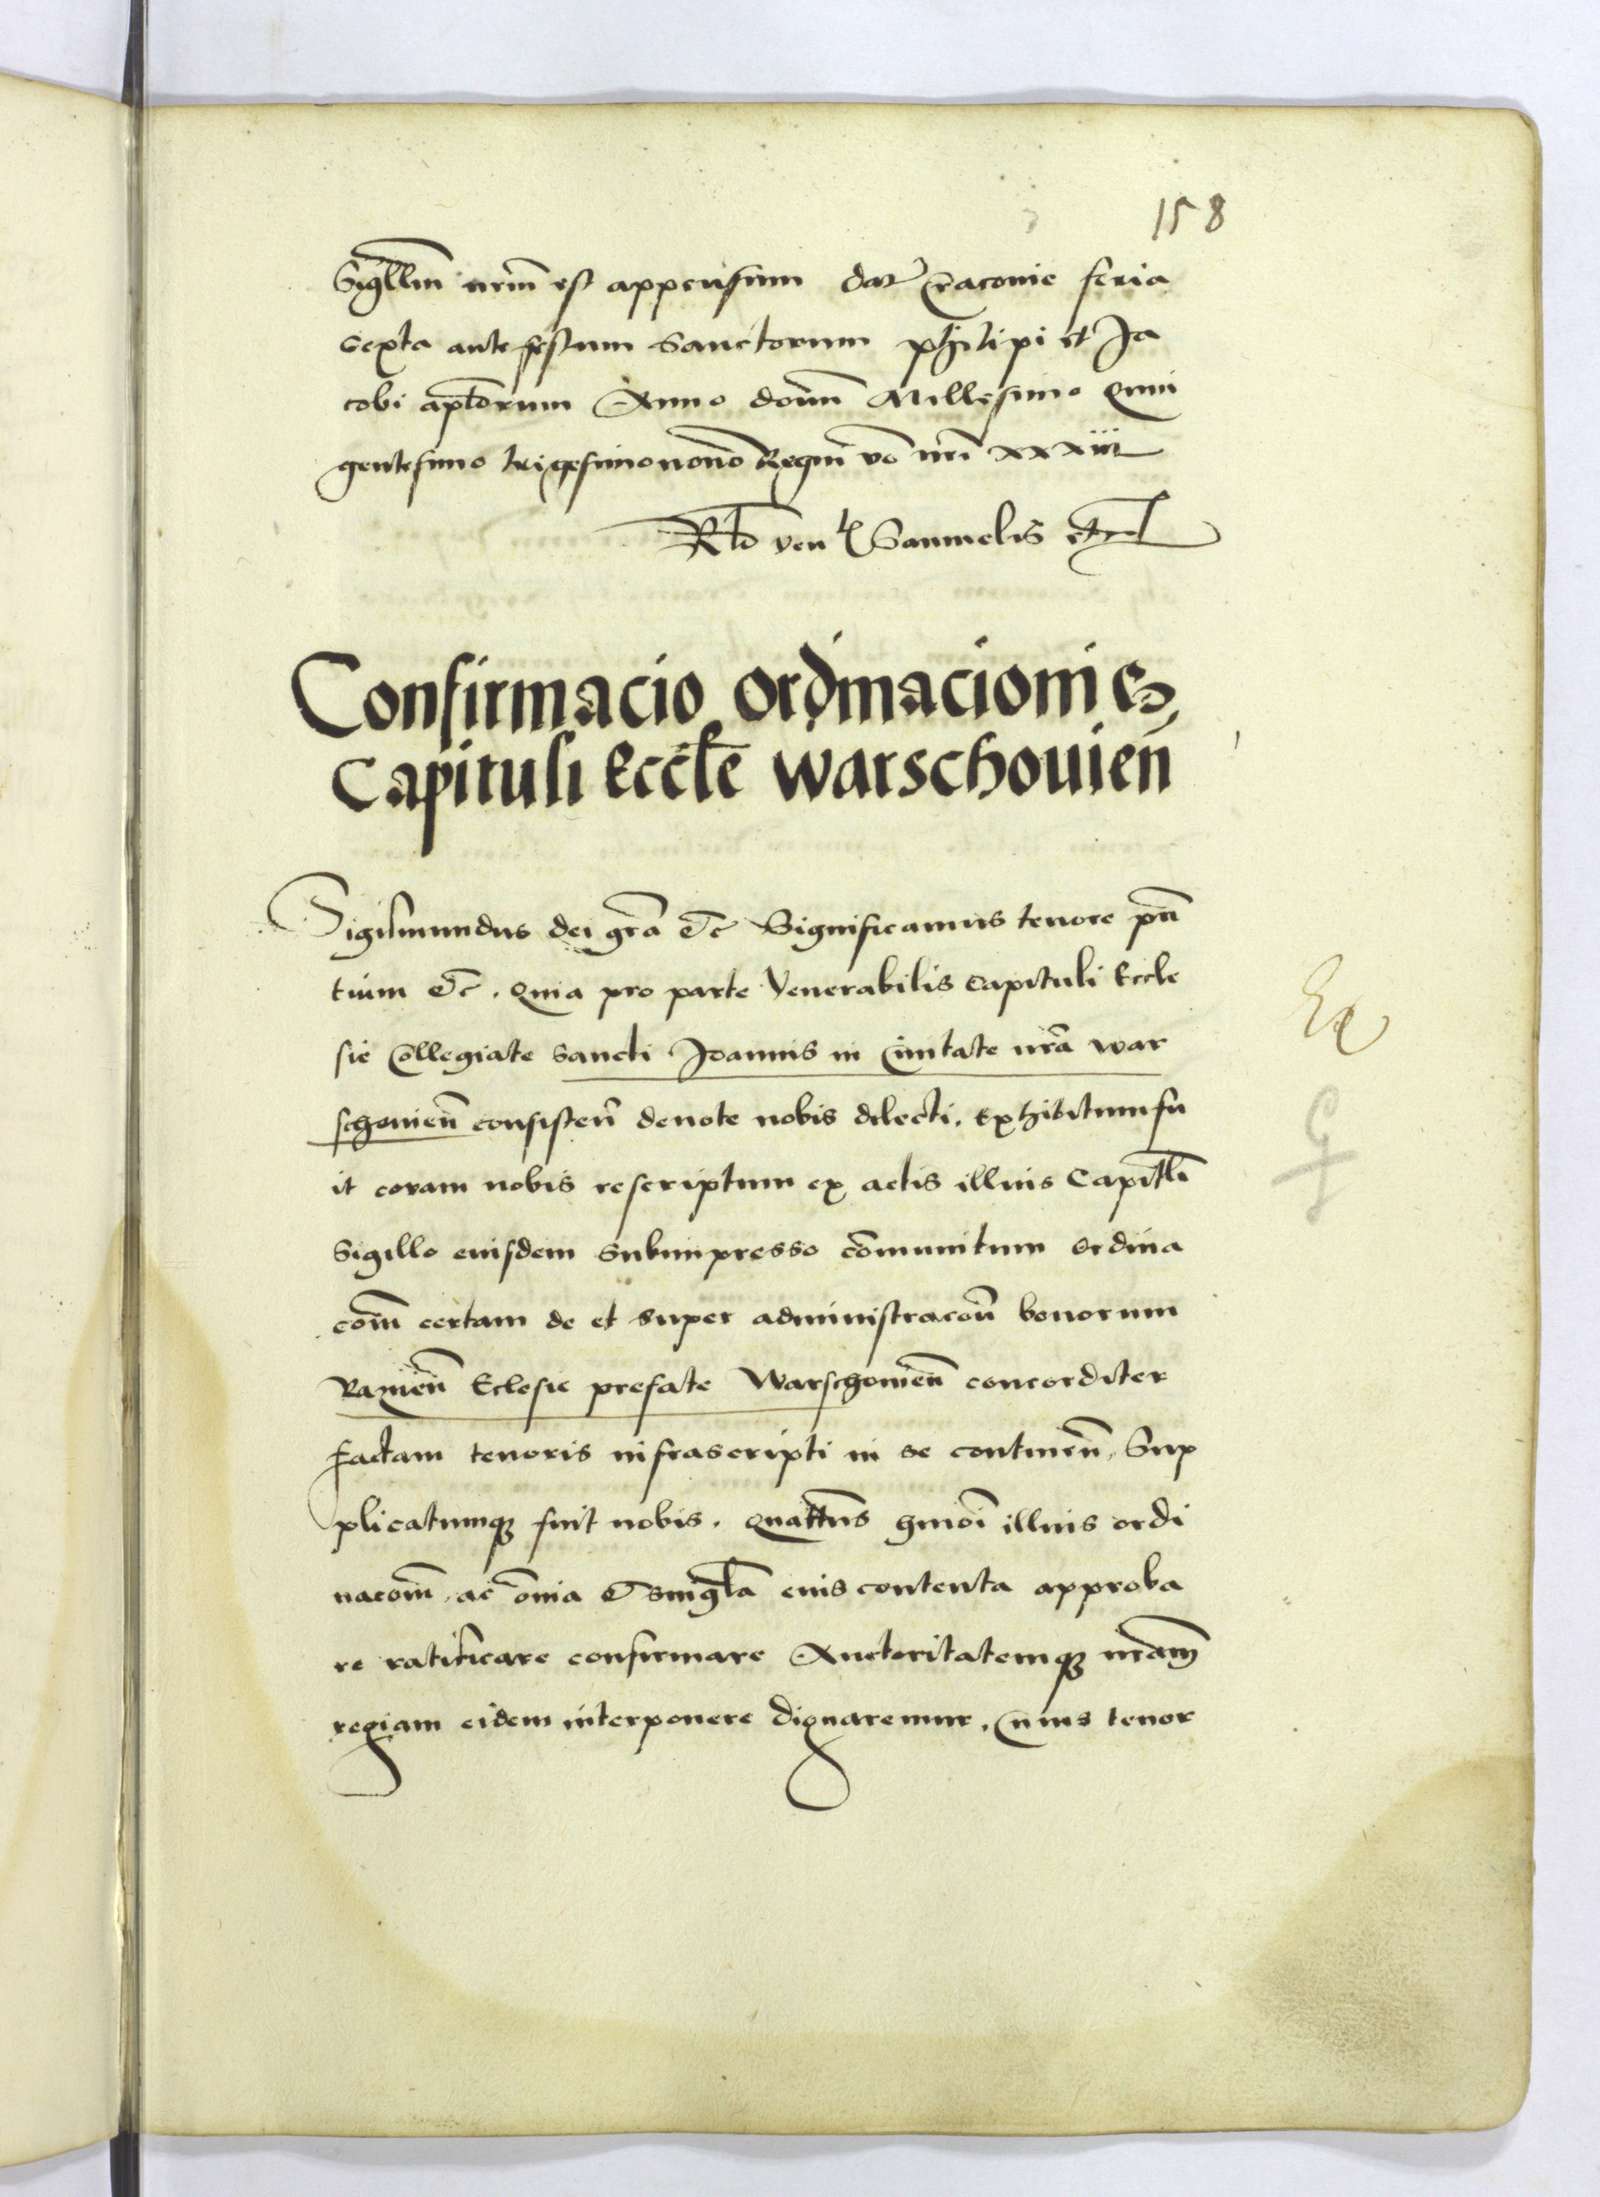 158
Sigllm nrm est appensum dat Cracovie feria
sexta ante festum Sanctorum philipi et Ja
cobi aptorum Anno domi Millesimo Quin
gentesimo trigesimonono Regni vo nri xxxiii
Rlo ven Samuelis etc
Confirmacio ordinacionis
Capituli Eccle warschovien
Sigismundus dei gra etc Significamus tenore pn
tium etc. quia pro parte Venerabilis Capituli Eccle
sie Collegiate sancti Joannis in Civitate nra war
schovien consisten devote nobis dilecti. Exhibitum fu
it coram nobis rescriptum ex actis illius Capitli
Sigillo eiusdem subimpresso comunitum ordina
com certam de et super administracon bonorum
Eclesie prefate Warschovien concorditer
factam tenoris infrascripti in se continen. Sup
plicatumque fuit nobis. quattus hmoi illius ordi
nacom ac omia et singla eius contenta approba
re ratificare confirmare Auctoritatemque nram
regiam eidem interponere dignaremur. Cuius tenor